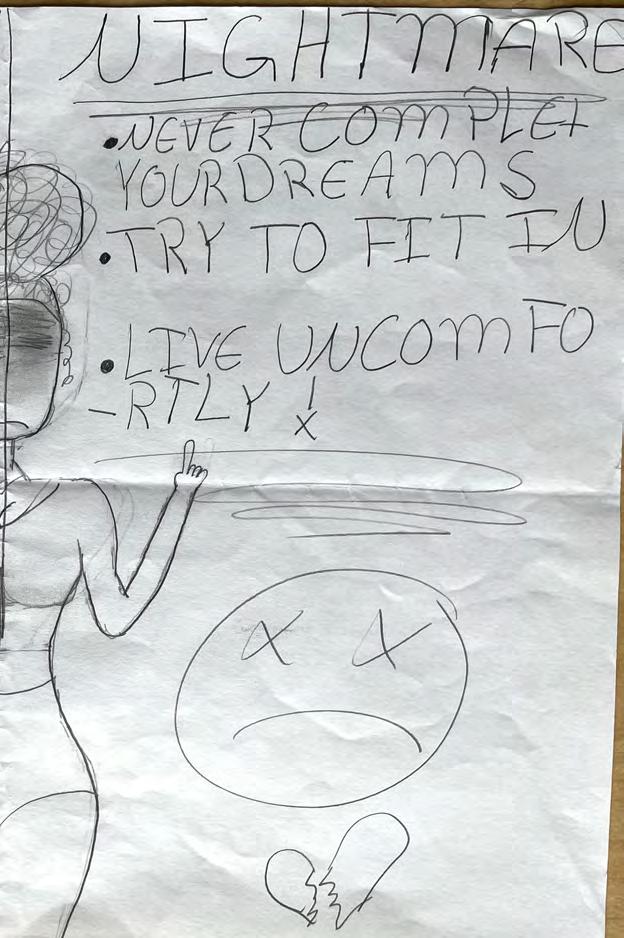 NIGHTMARE
•NEVER COMPLET
YOUR DREAMS
•TRY TO FIT IN
•LIVE UNCOMFO
-RTLY!